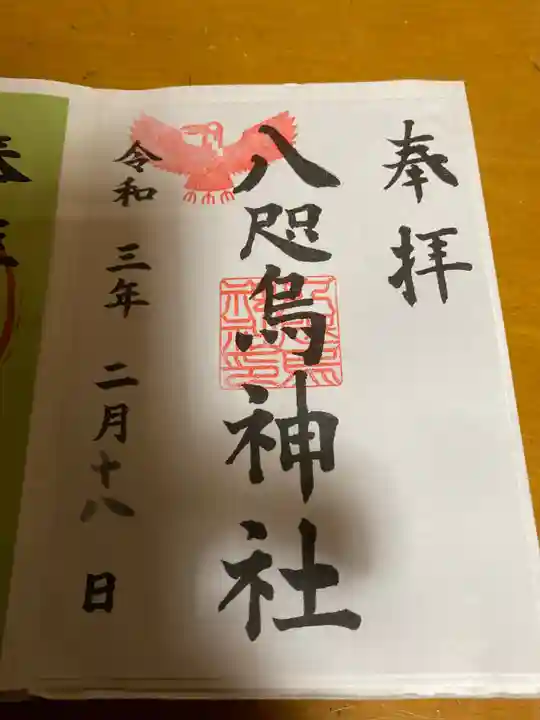 奉拝
八咫烏神社
令和 三年 二月十八 日